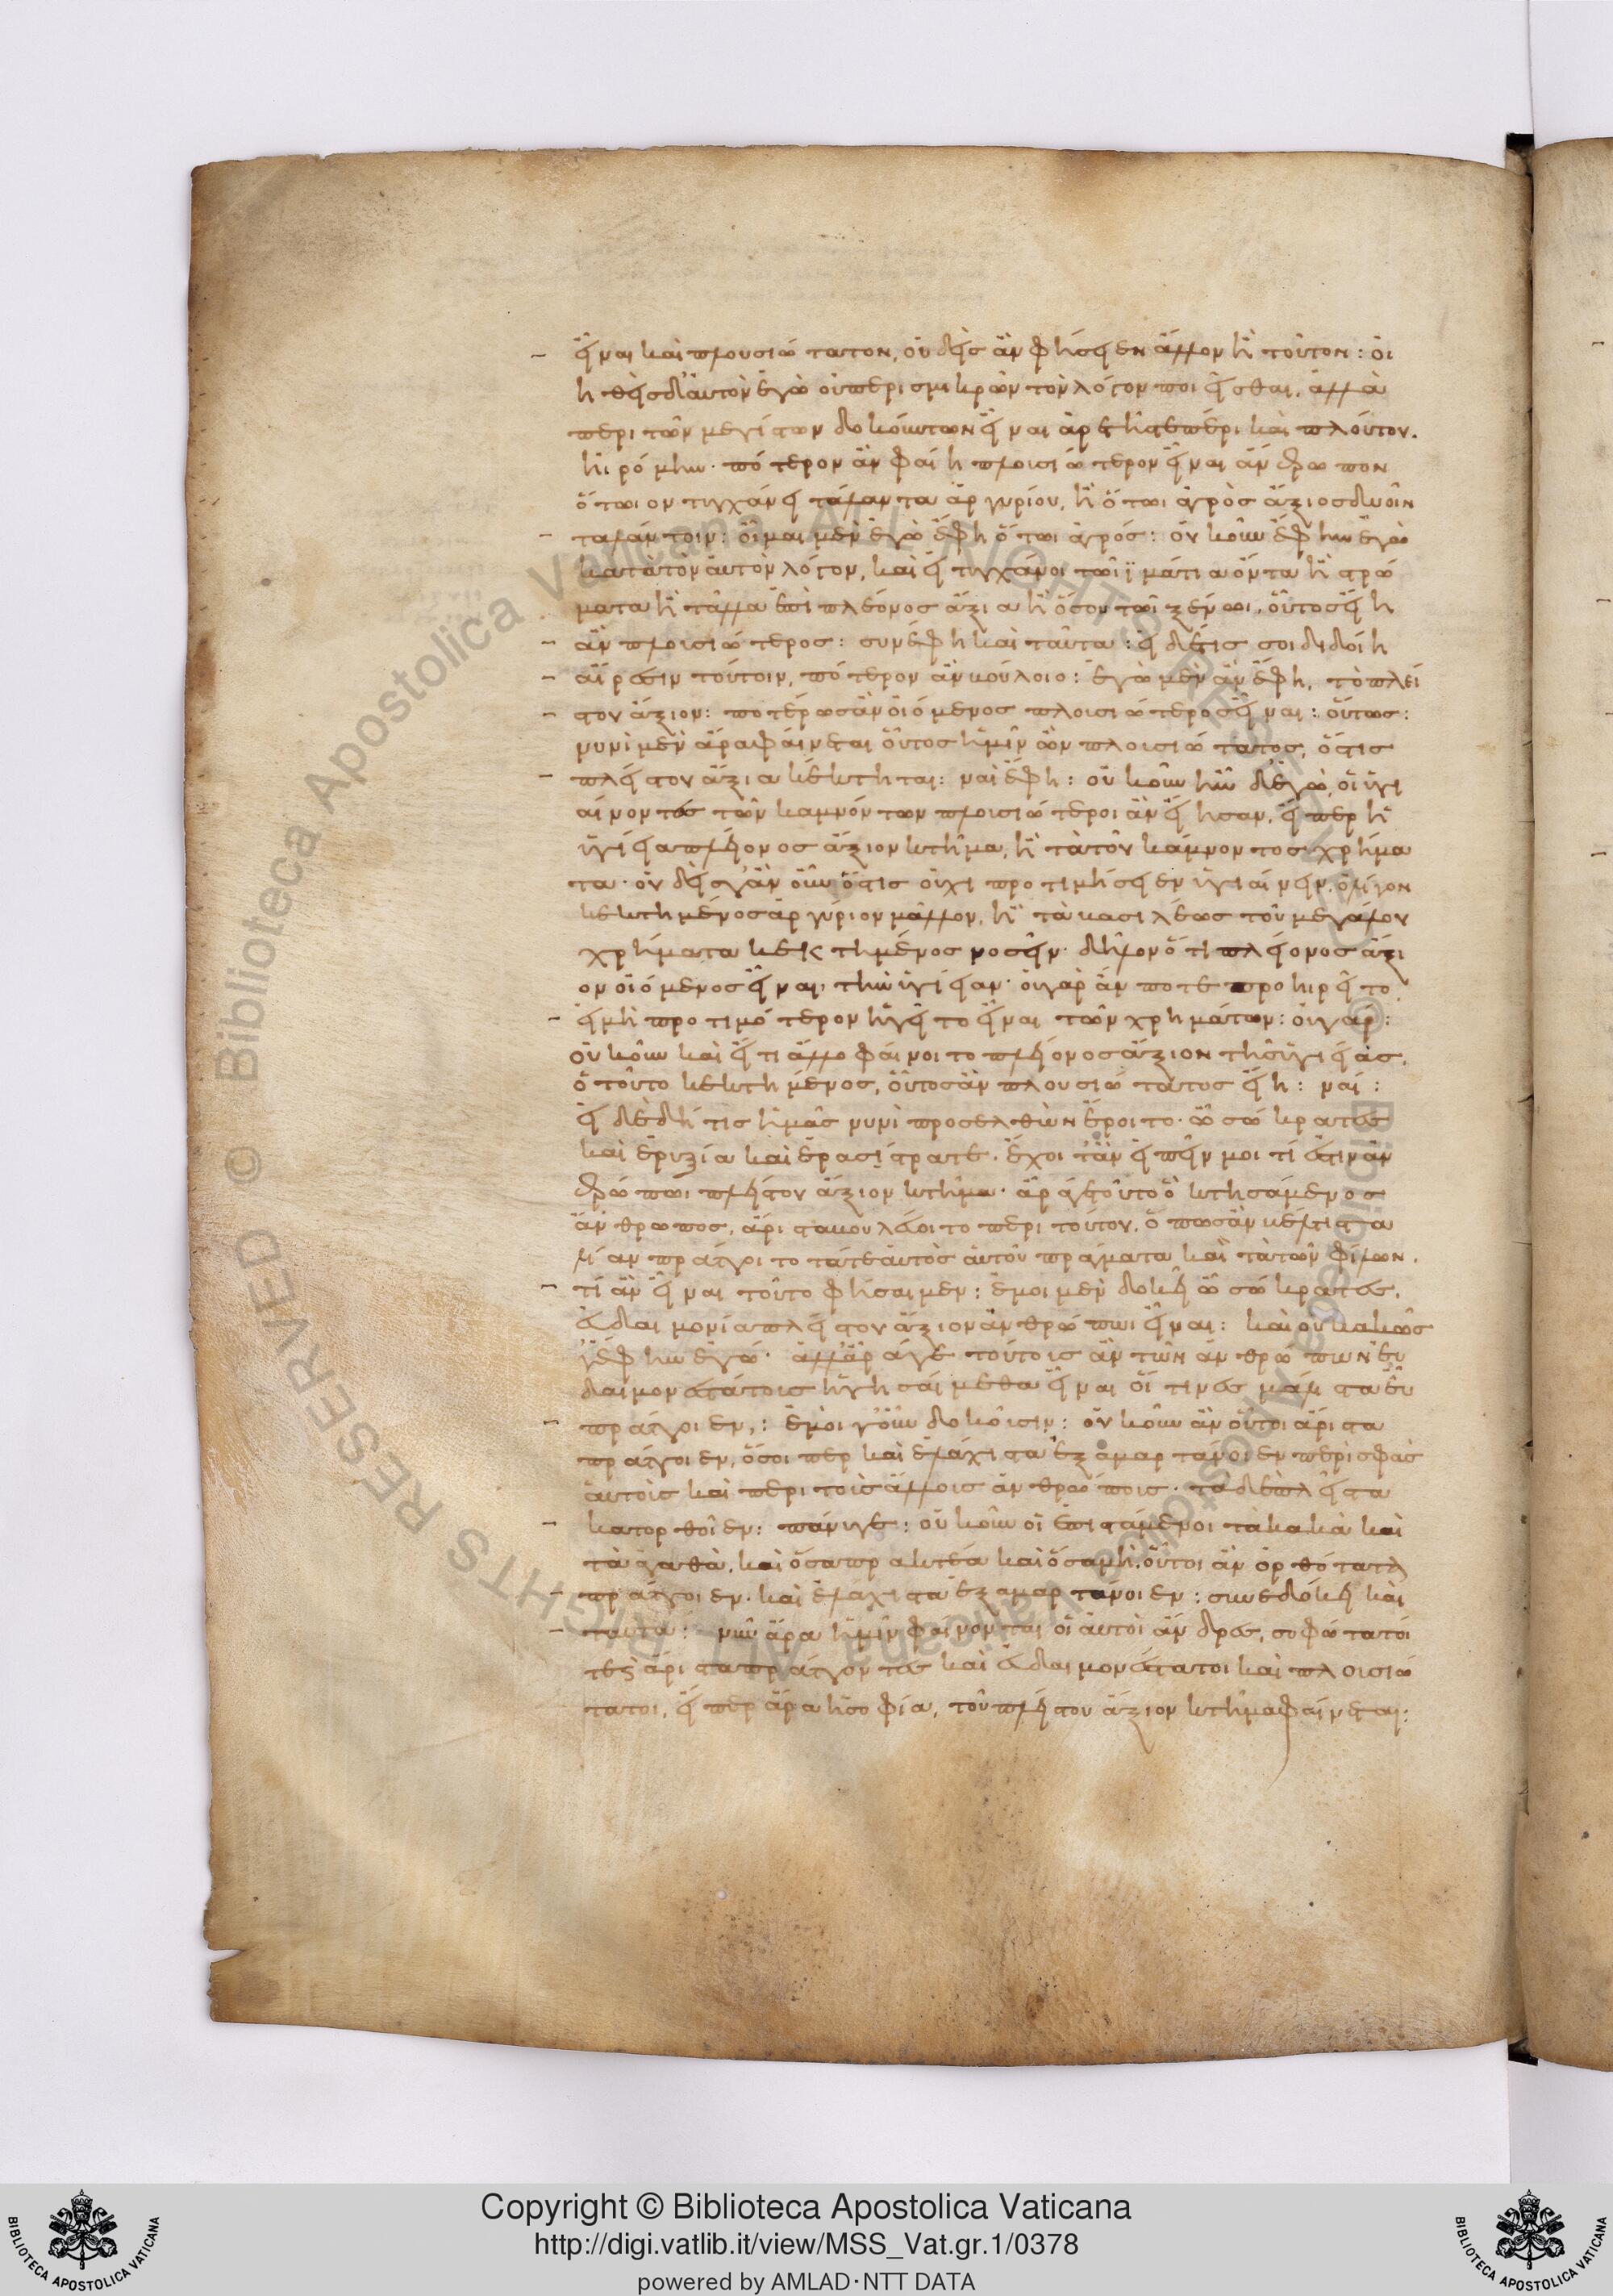 εἶναι καὶ πλουσιώτατον, οὐδεὶς ἂν φήσειεν ἄλλον ἢ τοῦτον: οἰ
ηθεὶς δ’ αὐτὸν ἐγὼ οὐ περὶ σμικρῶν τὸν λόγον ποιεῖσθαι, ἀλλὰ
περὶ τῶν μεγίστων δοκούντων εἶναι ἀρετῆς τε πέρι καὶ πλούτου.
ἠιρόμην· πότερον ἂν φαίη πλοισιώτερον εἶναι ἄνθρωπον
ὅτωι ὂν τυγχάνει τάλαντα ἀργυρίου, ἢ ὅτωι ἀγρὸς ἄξιος δυοῖν
ταλάντοιν: οἶμαι μὲν ἐγὼ ἔφη ὅτωι ἀγρός: οὐκοῦν ἔφην ἐγὼ
κατὰ τὸν αὐτὸν λόγον, καὶ εἰ τυγχάνοι τωι ϊμάτια ὄντα ἢ στρώ
ματα ἢ τἄλλα ἐπὶ πλέονος ἄξια ἢ ὅσον τῶι ξένωι, οὗτος εἴη
ἂν πλοισιώτερος: συνέφη καὶ ταῦτα: εἰ δέ τις σοι διδοίη
αἵρεσιν τούτοιν, πότερον ἂν βούλοιο: ἐγὼ μὲν ἂν ἔφη, τὸ πλεί
στου ἄξιον: ποτέρως ἂν οἰόμενος πλοισιώτερος εἶναι: οὕτως:
νυνὶ μὲν ἄρα φαίνεται οὗτος ἡμῖν ὢν πλοισιώτατος, ὅστις
πλείστου ἄξια κέκτηται: ναὶ ἔφη: οὐκοῦν ἦν δ’ ἐγώ, οἱ ὑγι
αίνοντες τῶν καμνόντων πλοισιώτεροι ἂν εἴησαν, εἴπερ ἡ
ὑγίεια πλείονος ἄξιον κτῆμα, ἢ τὰ τοῦ κάμνοντος χρήμα
τα· οὐδεὶς γ’ ἂν οὖν ὅστις οὐχὶ προτιμήσειεν ὑγιαίνειν, ὀλίγον
κεκτημένος ἀργύριον μᾶλλον, ἢ τὰ βασιλέως τοῦ μεγάλου
χρήματα κεκτημένος νοσεῖν· δῆλον ὅτι πλείονος ἄξι
ον οἰόμενος εἶναι, τὴν ὑγίειαν· οὐ γὰρ ἄν ποτε προηιρεῖτο
εἰ μὴ προτιμότερον ἡγεῖτο εἶναι τῶν χρημάτων: οὐ γάρ:
οὐκοῦν καὶ εἴ τι ἄλλο φαίνοιτο πλείονος ἄξιον τῆς ὑγιείας,
ὁ τοῦτο κεκτημένος, οὗτος ἂν πλουσιώτατος εἴη: ναί:
εἰ δὲ δή τις ἡμᾶς νυνὶ προσελθὼν ἔροιτο· ὦ σώκρατες
καὶ ἐρυξία καὶ ἐρασίστρατε· ἔχοιτ’ ἂν εἰπεῖν μοι τί ἐστιν ἀν
θρώπωι πλείστου ἄξιον κτῆμα· ἆρ’ ἐστι τοῦτο ὃ κτησάμενος
ἄνθρωπος, ἄριστα βουλεύοιτο περὶ τούτου, ὅπως ἂν βέλτιστα
διαπράττοιτο τά τε αὐτὸς αὑτοῦ πράγματα καὶ τὰ τῶν φίλων.
τί ἂν εἶναι τοῦτο φήσαιμεν: ἐμοι μὲν δοκεῖ ὦ σώκρατες,
εὐδαιμονία πλείστου ἄξιον ἀνθρώπωι εἶναι: καὶ οὐ κακῶς
γ’ ἔφην ἐγώ· ἀλλ’ ἆρά γε τούτοις ἂν τῶν ἀνθρώπων εὐ
δαιμονεστάτοις ἡγησαίμεθα εἶναι οἵ τινες μάλιστα εὖ
πράττοιεν,: ἐμοὶ γ’ οὖν δοκοῦσιν: οὐκοῦν ἂν οὗτοι ἄριστα
πράττοιεν, ὅσοι περ καὶ ἐλάχιστα ἐξαμαρτάνοιεν περὶ σφᾶς
αὐτοὺς καὶ περὶ τοὺς ἄλλοις ἀνθρώποις· τὰ δὲ πλεῖστα
κατορθοῖεν: πάνυ γε: οὐκοῦν οἱ ἐπιστάμενοι τὰ κακὰ καὶ
τὰ ἀγαθὰ, καὶ ὅσα πρακτέα καὶ ὅσα μὴ, οὗτοι ἂν ὀρθότατα
πράττοιεν· καὶ ἐλάχιστα ἐξαμαρτάνοιεν: συνεδόκει καὶ
ταῦτα: νῦν ἄρα ἡμῖν φαίνονται οἱ αὐτοὶ ἄνδρες, σοφώτατοί
τε ς ἄριστα πράττοντες καὶ εὐδαιμονέστατοι καὶ πλοισιώ
τατοι, εἴπερ ἄρα ἡ σοφία, τοῦ πλείστου ἄξιον κτῆμα φαίνεται:
Copyright © Biblioteca Apostolica Vaticana
http://digi.vatlib.it/view/MSS_Vat.gr.1/0378
powered by AMLAD·NTT DATA